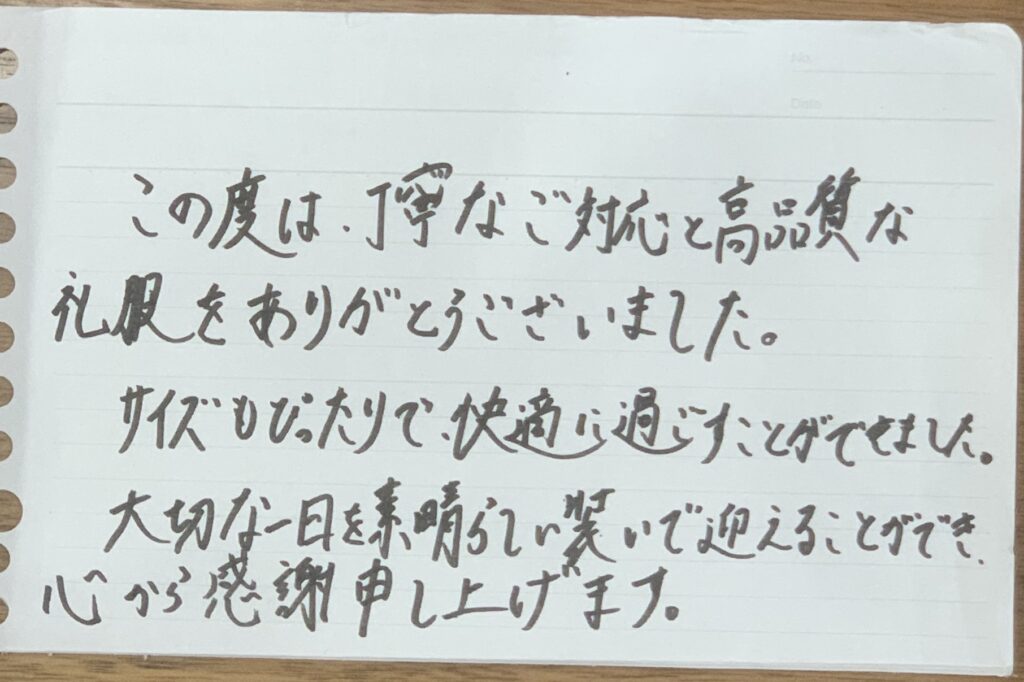 No.
Date
この度は、丁寧なご対応と高品質な
礼服をありがとうございました。
サイズもぴったりで、快適に過ごすことができました。
大切な一日を素晴らしい装いで迎えることができ、
心から感謝申し上げます。